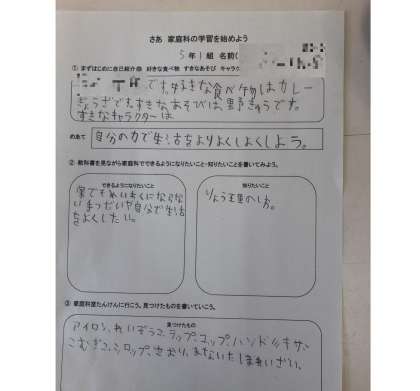 さあ 家庭科の学習を始めよう
5年1組 名前(
① まずはじめに自己紹介 好きな食べ物 すきなあそび キャラク
です。好きな食べ物はカレー
ぎょうざです。すきなあそびは、野きゅうです。
すきなキャラクターは
めあて 自分の力で生活をよりよくしよう。
② 教科書を見ながら家庭科でできるようになりたいこと・知りたいことを書いてみよう。
できるようになりたいこと
家でもめいわくにならな
い手つだいや自分で生活
をよくしたい。
知りたいこと
りょう理のし方。
③ 家庭科室たんけんに行こう。見つけたものを書いていこう。
見つけたもの
アイロン、れいぞうこ、ラップ、コップ、ハンドミキサー
こむぎこ、シロップ、はかり、まないた